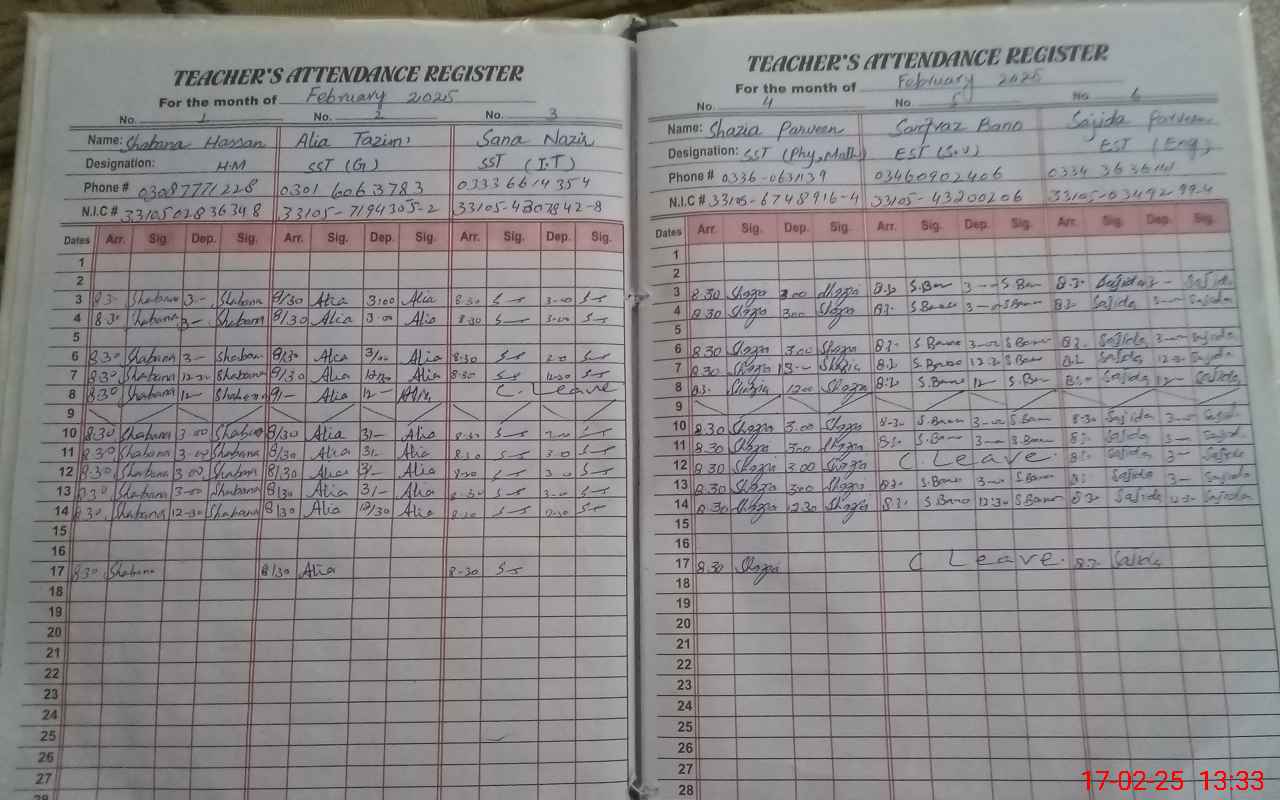 TEACHER'S ATTENDANCE REGISTER
For the month of February 2025
No. 1 No. 2 No. 3
Name: Shabana Hassan Alia Tazim Sana Nazir
Designation: H.M SST (G) SST (I.T)
Phone # 03087771228 0301 6063783 0333 6614354
N.I.C # 3310502836348 33105-7194305-2 33105-4307842-8
Dates Arr. Sig. Dep. Sig. Arr. Sig. Dep. Sig. Arr. Sig. Dep. Sig.
1
2
3 8.3- Shabana 3- Shabana 8/30 Alia 3.00 Alia 8.30 3-00
4 8.3- Shabana 3- Shabana 8/30 Alia 3.00 Alia 8.30 3.00
5
6 8.30 Shabana 3- Shabana 8/30 Alia 3/00 Alia 8.30
7 8.30 Shabana 12-30 Shabana 8/30 Alia Alia 8.30 12-30
8 8.30 Shabana 12- Shabana 9/- Alia 12- Alia C. Leave
9
10 8.30 Shabana 3-00 Shabana 8/30 Alia 3/- Alia 8.30
11 8.30 Shabana 3-00 Shabana 8/30 Alia 3/- Alia 8.30 3.00
12 8.30 Shabana 3.00 Shabana 8/30 Alia 3/- Alia
13 8.30 Shabana 3-00 Shabana 8/30 Alia 3/- Alia 8.30 3-00
14 8.30 Shabana 12-30 Shabana 8/30 Alia 12/30 Alia 12-30
15
16
17 8.30 Shabana 8/30 Alia 8-30
18
19
20
21
22
23
24
25
26
27
28
TEACHER'S ATTENDANCE REGISTER
For the month of February 2025
No. 4 No. 5 No. 6
Name: Shazia Parveen Sarfraz Bano Sajida Parveen
Designation: SST (Phy, Math) EST (S.V) EST (Eng)
Phone # 0336-0631139 03460902406 0334
N.I.C # 33105-6748916-4 33105-43200206 33105-03492994
Dates Arr. Sig. Dep. Sig. Arr. Sig. Dep. Sig. Arr. Sig. Dep. Sig.
1
2
3 8.30 Shazia 3.00 Shazia 8.3- S.Bano 3-00 S.Bano 8.3- Sajida 3- Sajida
4 8.30 Shazia 3.00 Shazia 8.3- S.Bano 3-00 S.Bano 8.3- Sajida 3-00 Sajida
5
6 8.30 Shazia 3.00 Shazia 8.3- S.Bano 3-00 S.Bano 8.3- Sajida 3-00 Sajida
7 8.30 Shazia Shazia 8.3- S.Bano 12.30 S.Bano Sajida 12.30 Sajida
8 8.3- Shazia 12.00 Shazia 8.3- S.Bano 12- S.Bano Sajida 12- Sajida
9
10 8.30 Shazia 3.00 Shazia 8-3- S.Bano 3-00 S.Bano 8.30 Sajida 3-00 Sajida
11 8.30 Shazia 3.00 Shazia 8.3- S.Bano 3-00 S.Bano 8.3- Sajida 3- Sajida
12 8.30 Shazia 3.00 Shazia C. Leave. 8.3- Sajida 3- Sajida
13 8.30 Shazia 3.00 Shazia 8.3- S.Bano 3-00 S.Bano 8.3- Sajida 3- Sajida
14 8.30 Shazia 12.30 Shazia 8.3- S.Bano 12.30 S.Bano 8.3- Sajida 12.30 Sajida
15
16
17 8.30 Shazia C Leave. 8.3- Sajida
18
19
20
21
22
23
24
25
26
27
28
17-02-25 13:33